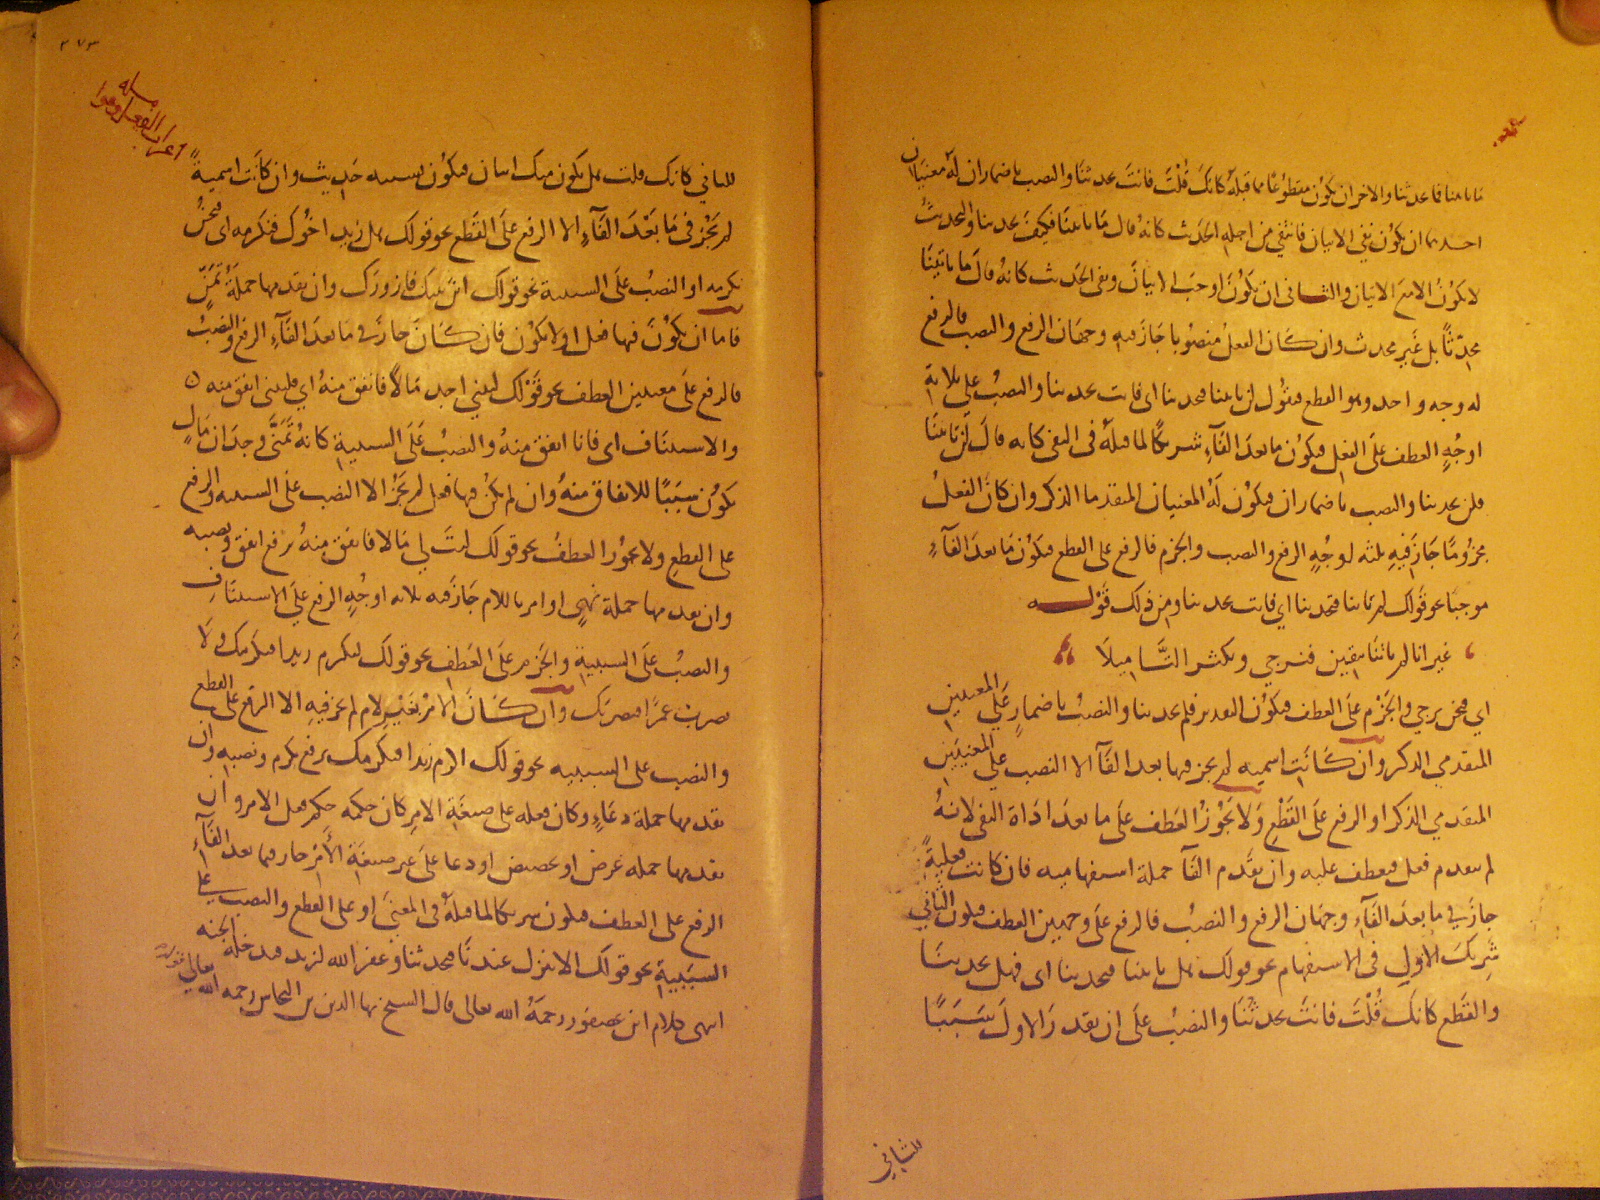 ما تاتينا فما تحدثنا والاخر ان يكون مقطوعا مما قبله كانك قلت فانت تحدثنا والنصب باضمار ان له معنيان
احدهما ان يكون نفي الاتيان فانتفي من اجله الحدث كانه قال ما تاتينا فكيف تحدثنا والحديث
لا يكون الا مع الاتيان والثاني ان يكون اوجب الاتيان ونفي الحديث كانه قال ما تاتينا
محدثا بل غير محدث وان كان الفعل منصوبا جاز فيه وجهان الرفع والنصب فالرفع
له وجه واحد وهو القطع فتقول لن تاتينا فتحدثنا اي فانت تحدثنا والنصب على ثلاثة
اوجه العطف على الفعل فيكون ما بعد الفاء شريكا لما قبله في النفي كانه قال لن تاتينا
فلن تحدثنا والنصب باضمار ان فيكون له المعنيان المتقدما الذكر وان كان الفعل
مجزوما جاز فيه ثلثه اوجه الرفع والنصب والجزم فالرفع على القطع فيكون ما بعد الفاء
موجبا نحو قولك لم تاتنا فتحدثنا اي فانت تحدثنا ومن ذلك قوله
غير انا لم ياتنا بيقين فنرجي ونكثر التاميلا
اي فنحن نرجي والجزم على العطف فيكون التقدير فلم تحدثنا والنصب باضمار على المعنيين
المتقدمي الذكر وان كانت اسمية لم يجز فيها بعد الفآ الا النصب على المعنيين
المتقدمي الذكر او الرفع على القطع ولا يجوز العطف على ما بعد اداة النفي لانه
لم يتقدم فعل فيعطف عليه وان تقدم الفآ جملة استفهامية فان كانت فعلية
جاز في ما بعد الفاء وجهان الرفع والنصب فالرفع على وجهين العطف فيكون الثاني
شريك الاول في الاستفهام نحو قولك هل تاتينا فتحدثنا اي فهل تحدثنا
والقطع كانك قلت فانت تحدثنا والنصب على ان يقدر الاول سببا
للثاني
٣٧٣
مسله
اعراب الفعل وهو
للثاني كانك قلت هل يكون منك اتيان فيكون بسببه حديث وان كانت اسمية
لم يجز في ما بعد الفآء الا الرفع على القطع نحو قولك هل زيد اخوك فنكرمه اي فنحن
نكرمه او النصب على السببية نحو قولك اين بيتك فازورك وان تقدمها جملة تمن
فاما ان يكون فيها فعل او لا يكون فان كان جاز في ما بعد الفآء الرفع والنصب
فالرفع على معنيين العطف نحو قولك ليتني اجد مالا فانفق منه اي فليتني انفق منه
والاستئناف اي فانا انفق منه والنصب على السببية كانه تمنى وجدان مال
يكون سببا للانفاق منه وان لم يكن فيها فعل لم يجز الا النصب على السببيه والرفع
على القطع ولا يجوز العطف نحو قولك ليت لي مالا فانفق منه برفع انفق ونصبه
وان تقدمها جملة نهي او امر باللام جاز فيه ثلاثه اوجه الرفع على الاستئناف
والنصب على السببية والجزم على العطف نحو قولك ليكرم زيد عمرا فيكرمك ولا
تضرب عمرا فيضربك وان كان الامر بغير لام لم يجز فيه الا الرفع على القطع
والنصب على السببيه نحو قولك اكرم زيدا فيكرمك برفع يكرم ونصبه وان
تقدمها جملة دعاء وكان فعله على صيغة الامر كان حكمه حكم فعل الامر وان
تقدمها جمله عرض او تحضيض او دعا على غير صيغة الامر جاز فيما بعد الفاء
الرفع على العطف فيكون شريكا لما قبله في المعنى او على القطع والنصب على
السببية نحو قولك الا تنزل عندنا فتحدثنا وغفر الله لزيد فيدخله الجنه
انتهى كلام ابن عصفور رحمه الله تعالى قال الشيخ بها الدين بن النحاس رحمه الله تعالى